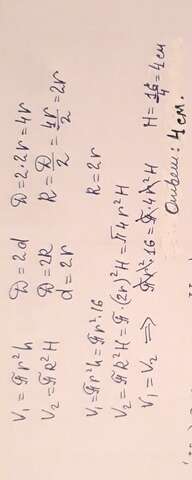 V₁ = πr²h    D = 2d    D = 2·2r = 4r
V₂ = πR²H    D = 2R    R = D/2 = 4r/2 = 2r
d = 2r
V₁ = πr²h = πr²·16    R = 2r
V₂ = πR²H = π·(2r)²H = π4r²H
V₁ = V₂ ⇒ πr²·16 = π·4r²H    H = 16/4 = 4см
Ответ: 4 см.